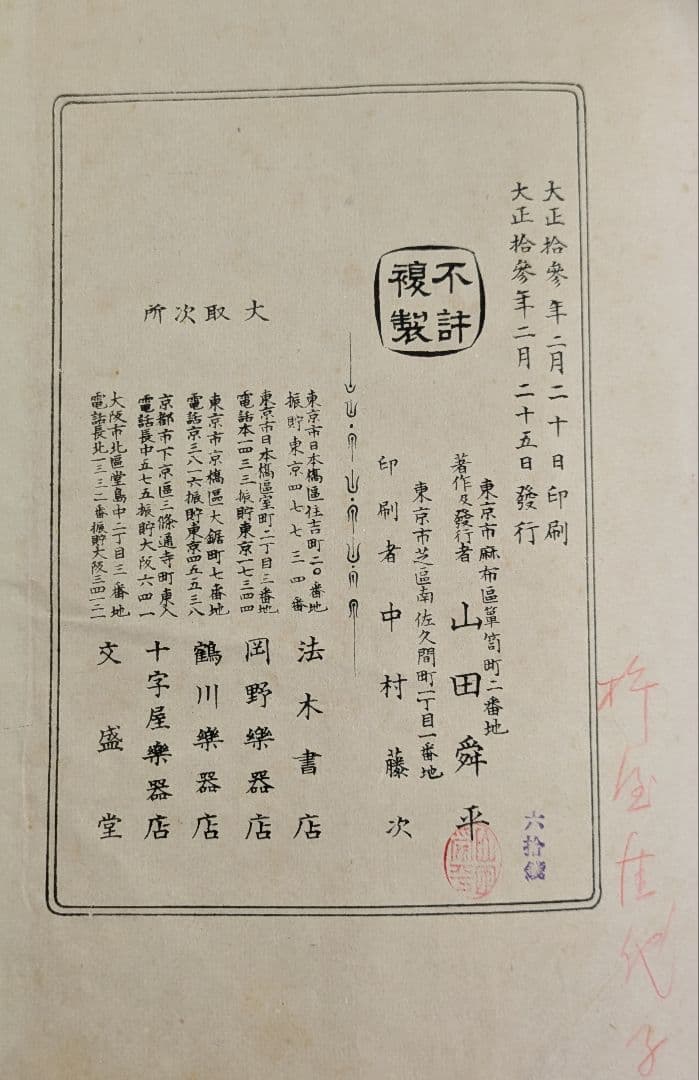 大正拾參年二月二十日印刷
大正拾參年二月二十五日發行
不許
複製
東京市麻布區簞笥町二番地
著作及發行者 山田舜平
東京市芝區南佐久間町一丁目一番地
印刷者 中村藤次
六拾錢
大取次所
東京市日本橋區住吉町二〇番地
振貯東京四七七三四番
法木書店
東京市日本橋區室町二丁目三番地
電話本一四三三振貯東京一七三四四
岡野樂器店
東京市京橋區大鋸町七番地
電話京三八一六振貯東京四五五三八
鶴川樂器店
京都市下京區三條通寺町東入
電話長中五七五振貯大阪六四一
十字屋樂器店
大阪市北區堂島中二丁目三番地
電話長北一三三二番振貯大阪三四一二
文盛堂
杵屋